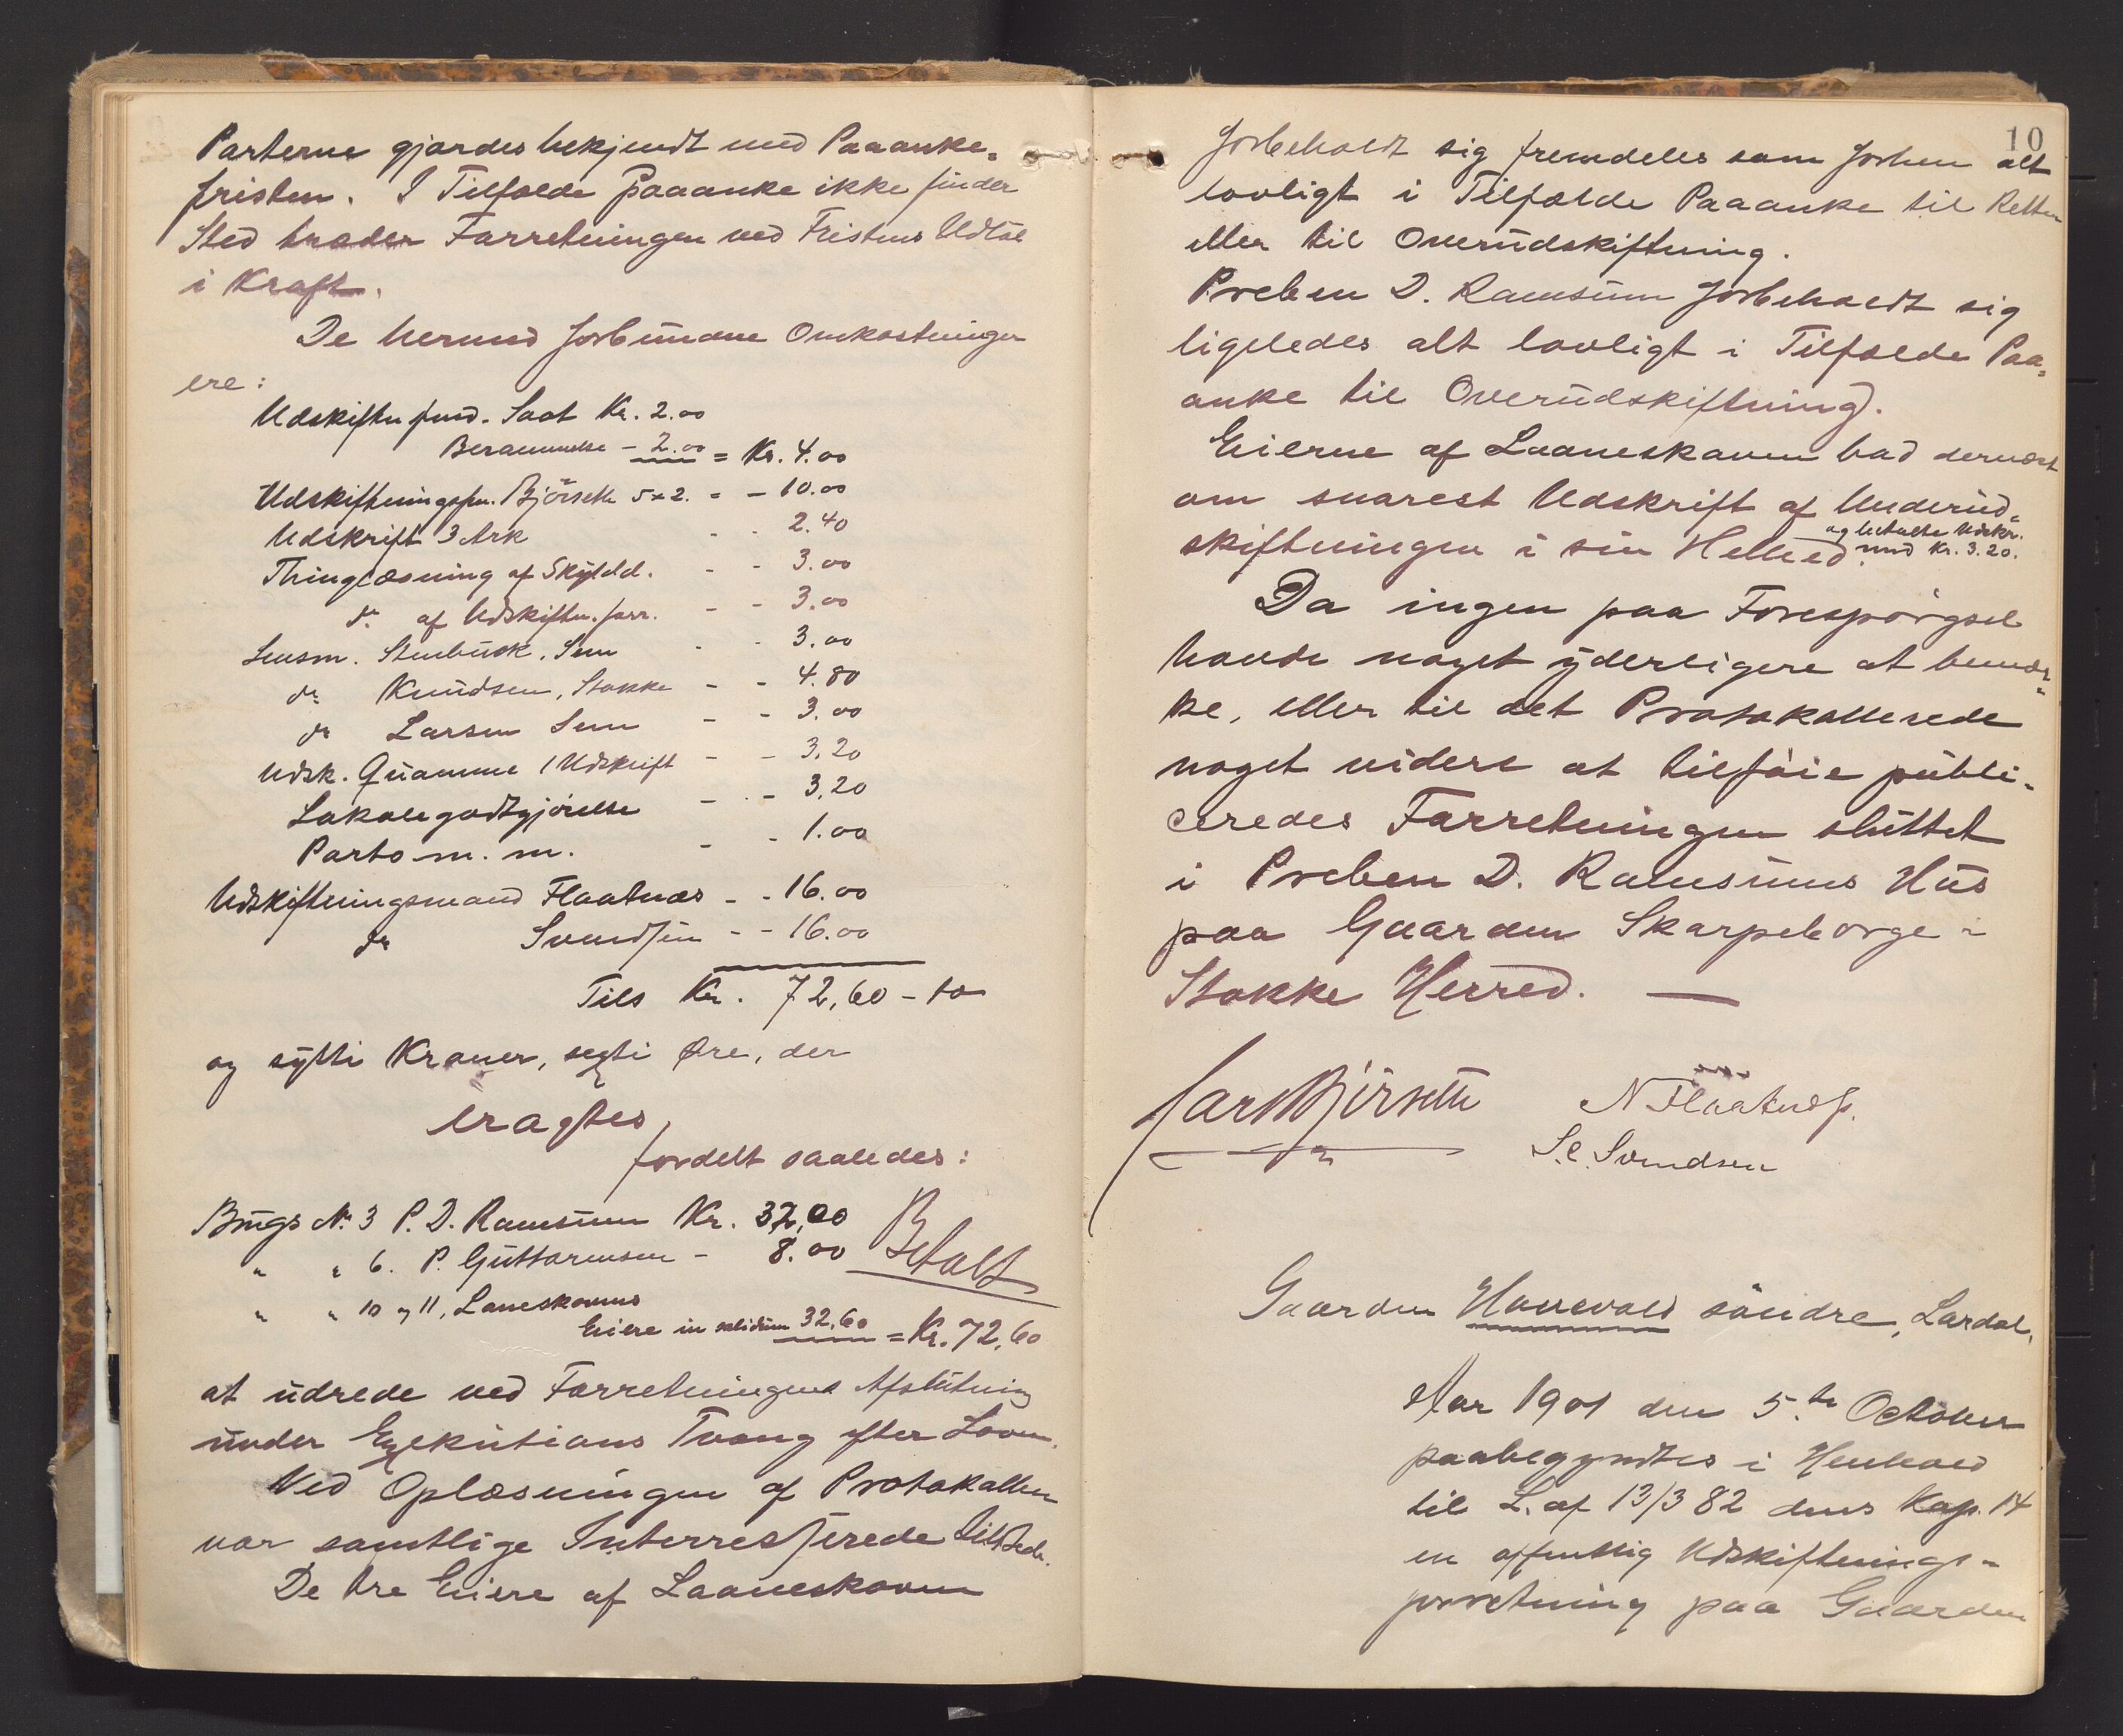 Parterne gjordes bekjendt med Paaanke-
fristen. I Tilfælde Paaanke ikke finder
Sted træder Forretningen ved Fristens Udløb
i Kraft.
De herved forbundne Omkostninger
ere:
Udskiftn.fund. Saat Kr. 2.00
Berammelse - 2.00 = Kr. 4.00
Udskiftningsfm. Bjørseth 5x2. = - 10.00
Udskrift 3 Ark - - 2.40
Thinglæsning af Skyldd. - - 3.00
do af Udskiftn.forr. - - 3.00
Lensm. Stenbuck, Sem - - 3.00
do Knudsen, Stokke - - 4.80
do Larsen Sem - - 3.00
Udsk. Quamme 1 Udskrift - - 3.20
Lokalegodtgjørelse - - 3.20
Porto m. m. - - 1.00
Udskiftningsmand Flaatnæs - - 16.00
do Svendsen - - 16.00
Tils Kr. 72,60 - to
og sytti Kroner, sexti Øre, der
eragtes
fordelt saaledes:
Brugs No 3 P. D. Ramsum Kr. 32,00
" " 6. P. Guttormsen - 8.00 Betalt
" " 10 og 11, Laneskovens
Eiere in solidum 32,60 = Kr. 72,60
at udrede ved Forretningens Afslutning
under Exekutions Tvang efter Loven.
Ved Oplæsningen af Protokollen
var samtlige Interresserede tilstede.
De tre Eiere af Laaneskoven
10
forbeholdt sig fremdeles som forhen alt
lovligt i Tilfælde Paaanke til Retten
eller til Overudskiftning.
Preben D. Ramsum forbeholdt sig
ligeledes alt lovligt i Tilfælde Paa-
anke til Overudskiftning.
Eierne af Laaneskoven bad dernæst
om snarest Udskrift af Underud-
og betalte Udskr.
skiftningen i sin Helhed. med Kr. 3.20.
Da ingen paa Forespørgsel
havde noget yderligere at bemær-
ke, eller til det Protokollerede
noget videre at tilføie publi-
ceredes Forretningen sluttet
i Preben D. Ramsums Hus
paa Gaarden Skarpeborge i
Stokke Herred. —
Lars Bjørseth N Flaatnæs.
S. C. Svendsen
Gaarden Hanevold søndre, Lardal.
Aar 1901 den 5.te October
paabegyndtes i Henhold
til L. af 13/3 82 dens Kap. 14
en offentlig Udskiftnings-
forretning paa Gaarden